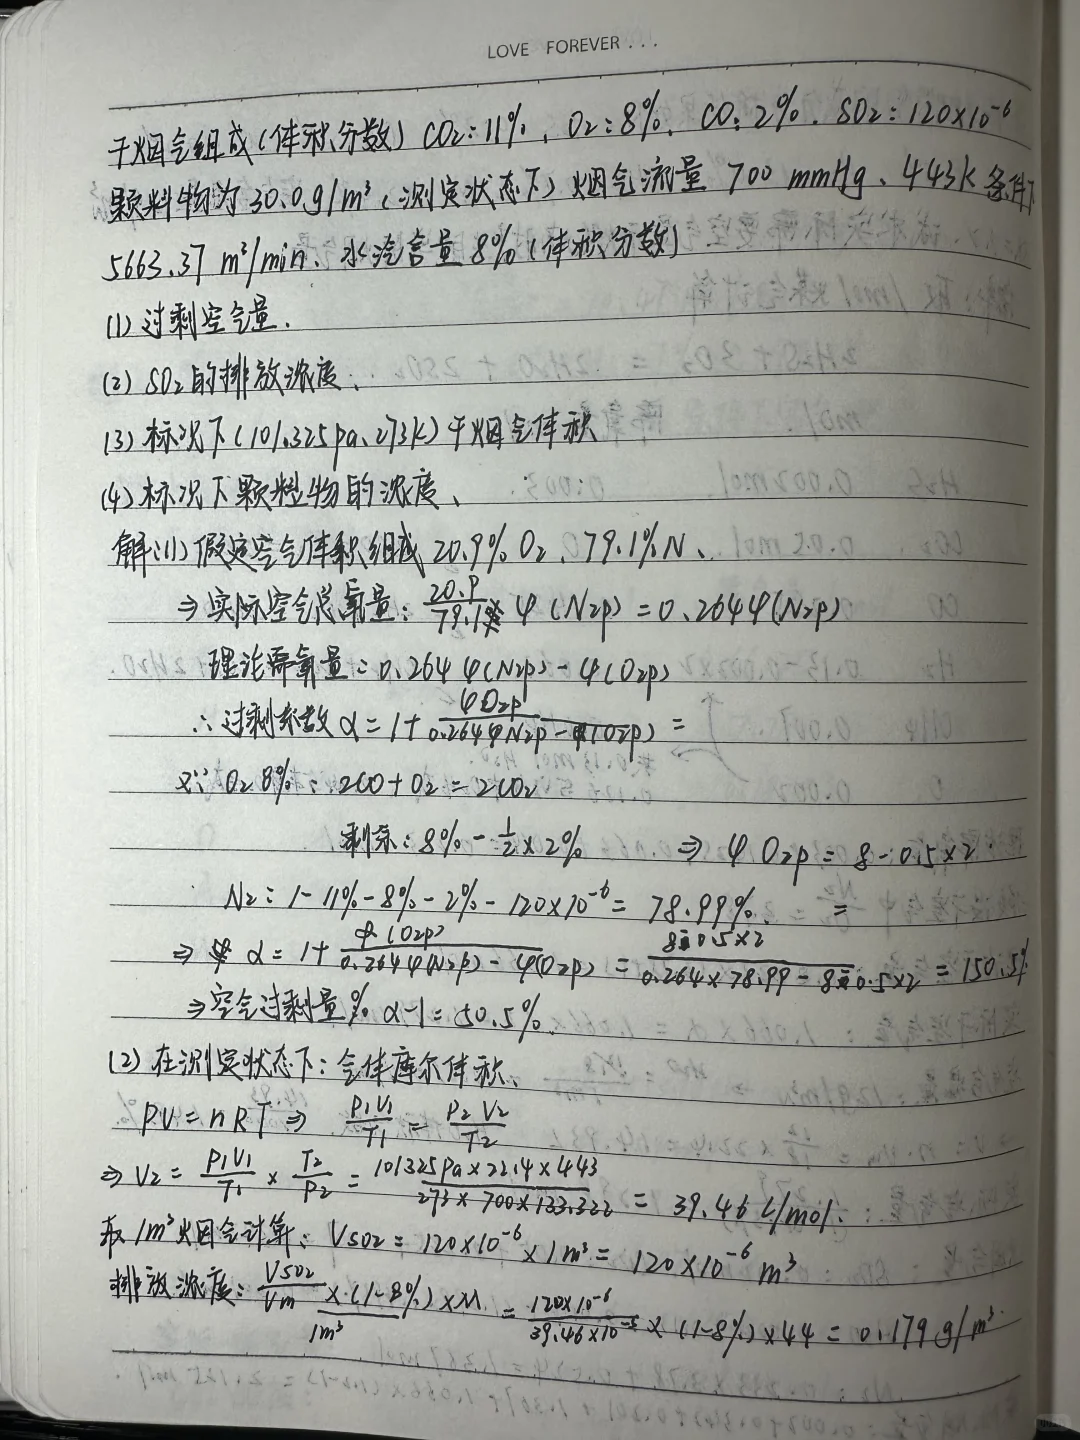 LOVE FOREVER...
干烟气组成(体积分数) CO₂:11%、O₂:8%、CO:2%、SO₂:120×10⁻⁶
颗料物为30.0g/m³(测定状态下)烟气流量 700 mmHg、443K条件下
5663.37 m³/min、水汽含量8%(体积分数)
(1)过剩空气量、
(2) SO₂的排放浓度、
(3)标况下(101.325pa、273K)干烟气体积
(4)标况下颗粒物的浓度、
解:(1)假定空气体积组成 20.9% O₂、79.1% N、
⇒实际空气总氧量: 20.9/79.1 × φ(N₂p) = 0.264φ(N₂p)
理论需氧量: 0.264 φ(N₂p) - φ(O₂p)
∴过剩系数 α = 1 + φO₂p/(0.264φN₂p - φ(O₂p)) =
又∵ O₂ 8%: 2CO + O₂ = 2CO₂
剩余: 8% - 1/2 × 2% ⇒ φO₂p = 8 - 0.5×2
N₂: 1 - 11% - 8% - 2% - 120×10⁻⁶ = 78.99% =
⇒ α = 1 + φ(O₂p)/(0.264φ(N₂p) - φ(O₂p)) = (8-0.5×2)/(0.264×78.99 - 8-0.5×2) = 150.5%
⇒空气过剩量% α-1 = 50.5%
(2)在测定状态下:气体摩尔体积、
PV = nRT ⇒ P₁V₁/T₁ = P₂V₂/T₂
⇒ V₂ = P₁V₁/T₁ × T₂/P₂ = (101325pa×22.4×443)/(273×700×133.322) = 39.46 L/mol.
取1m³烟气计算: Vso₂ = 120×10⁻⁶ × 1m³ = 120×10⁻⁶ m³
排放浓度: (Vso₂/Vm ×(1-8%)×M)/1m³ = 120×10⁻⁶/39.46×10⁻³ × (1-8%)×44 = 0.179 g/m³